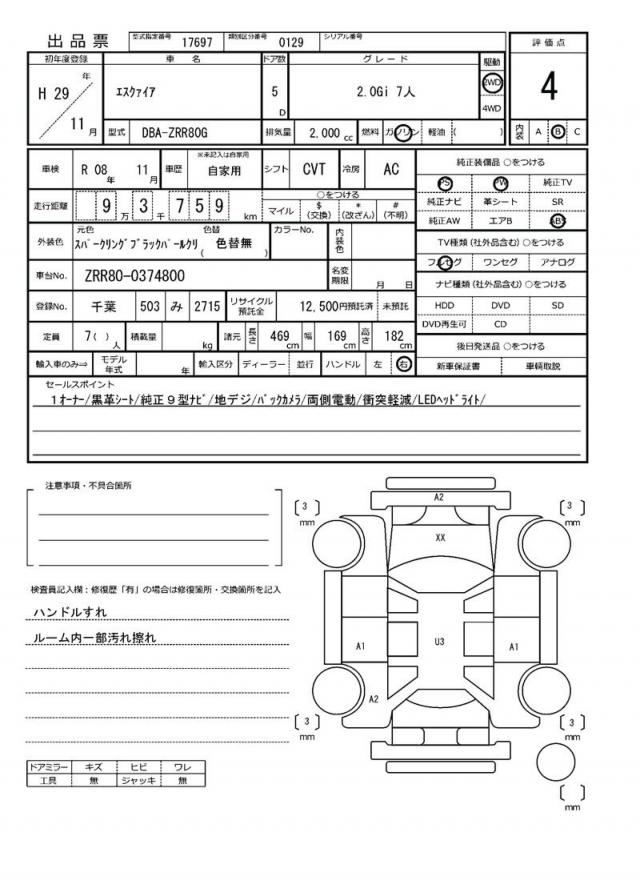 出品票 型式指定番号 17697 類別区分番号 0129 シリアル番号
初年度登録 車 名 ドア数 グレード 駆動 評価点
H 29 年 11 月 ｴｽｸｧｲｱ 5 D 2.0Gi 7人 2WD 4WD 4
型式 DBA-ZRR80G 排気量 2,000 cc 燃料 ガソリン 軽油 ( ) 内装 A B C
車検 R 08 年 11 月 車歴 ※未記入は自家用 自家用 シフト CVT 冷房 AC
走行距離 9 万 3 千 7 5 9 km ○をつける マイル $ (交換) * (改ざん) # (不明)
外装色 元色 ｽﾊﾟｰｸﾘﾝｸﾞﾌﾞﾗｯｸﾊﾟｰﾙｸﾘ 色替 ( 色替無 ) カラーNo. 内装色
車台No. ZRR80-0374800 名変期限 月 日
登録No. 千葉 503 み 2715 リサイクル預託金 12,500円預託済 未預託
定員 7( ) 人 積載量 kg 諸元 長さ 469 cm 幅 169 cm 高さ 182 cm
輸入車のみ⇒ モデル年式 年 輸入区分 ディーラー 並行 ハンドル 左 右
純正装備品 ○をつける
PS PW 純正TV
純正ナビ 革シート SR
純正AW エアB ABS
TV種類 (社外品含む) ○をつける
フルセグ ワンセグ アナログ
ナビ種類 (社外品含む) ○をつける
HDD DVD SD
DVD再生可 CD
後日発送品 ○をつける
新車保証書 車輌取説
セールスポイント
1ｵｰﾅｰ/黒革ｼｰﾄ/純正９型ﾅﾋﾞ/地デジ/ﾊﾞｯｸｶﾒﾗ/両側電動/衝突軽減/LEDﾍｯﾄﾞﾗｲﾄ/
注意事項・不具合箇所
検査員記入欄：修復歴「有」の場合は修復箇所・交換箇所を記入
ハンドルすれ
ルーム内一部汚れ擦れ
ドアミラー キズ ヒビ ワレ
工具 無 ジャッキ 無
A2
[ 3 ] mm [ 3 ] mm
XX
A1 U3 A1
A2
[ 3 ] mm [ 3 ] mm
[ ] mm